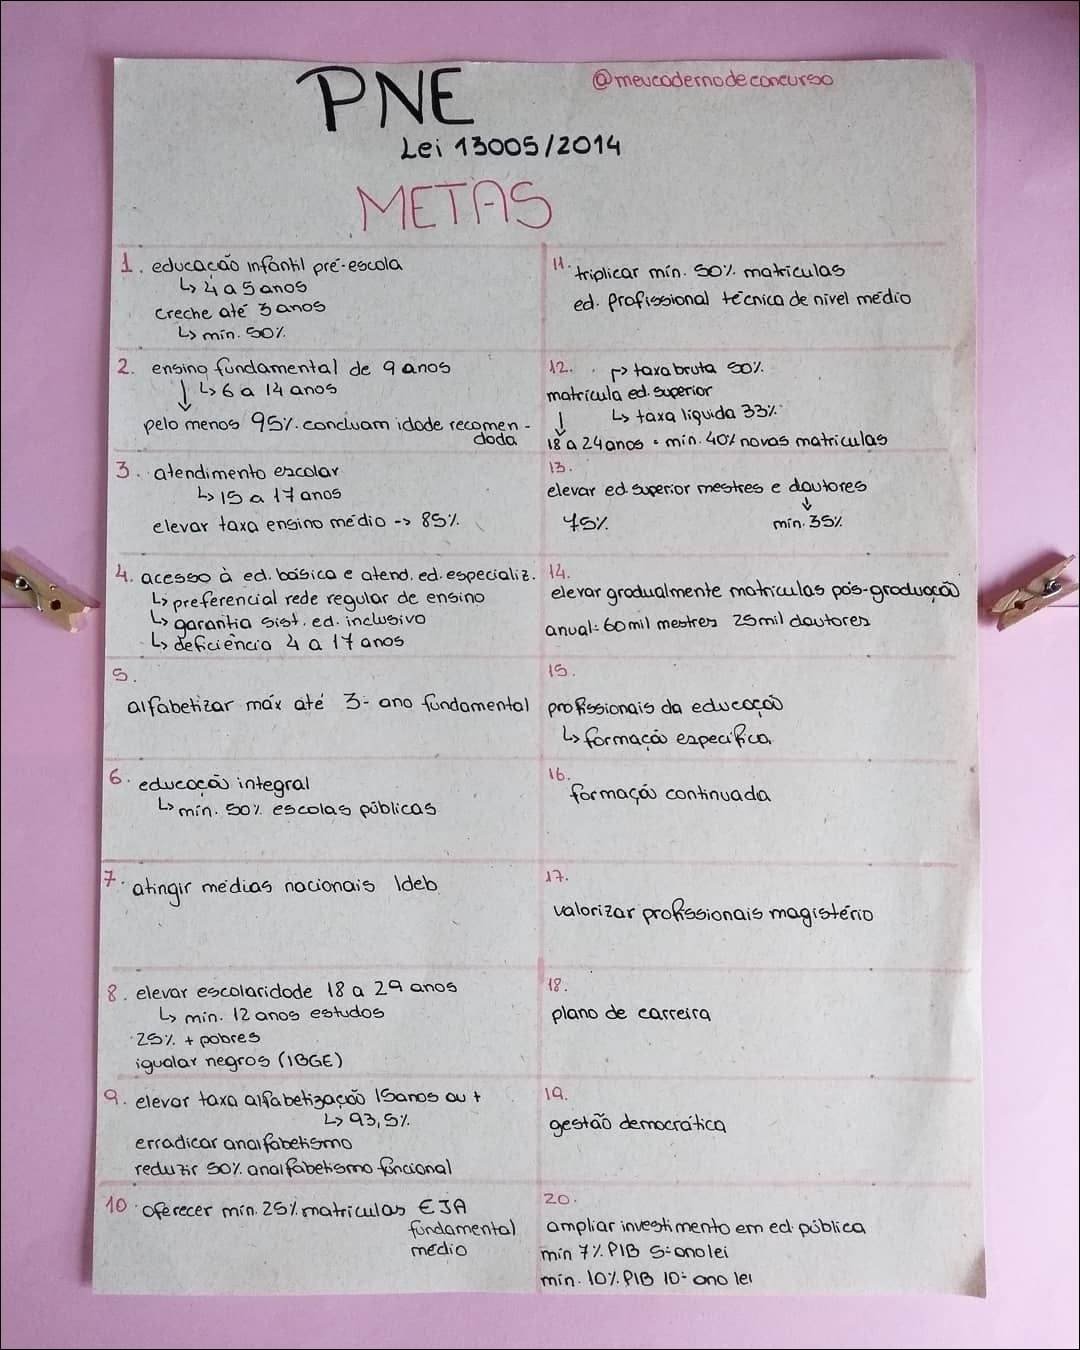 PNE
@meucadernodeconcurso
Lei 13005/2014
METAS
1. educação infantil pré-escola
↳ 4 a 5 anos
creche até 3 anos
↳ mín. 50%
2. ensino fundamental de 9 anos
↓ ↳ 6 a 14 anos
pelo menos 95% concluam idade recomen-
dada
3. atendimento escolar
↳ 15 a 17 anos
elevar taxa ensino médio -> 85%
4. acesso à ed. básica e atend. ed. especializ.
↳ preferencial rede regular de ensino
↳ garantia sist. ed. inclusivo
↳ deficiência 4 a 17 anos
5.
alfabetizar máx até 3º ano fundamental
6. educação integral
↳ mín. 50% escolas públicas
7. atingir médias nacionais Ideb
8. elevar escolaridade 18 a 29 anos
↳ mín. 12 anos estudos
25% + pobres
igualar negros (IBGE)
9. elevar taxa alfabetização 15 anos ou +
↳ 93,5%
erradicar analfabetismo
reduzir 50% analfabetismo funcional
10. oferecer mín. 25% matrículas EJA
fundamental
médio
11. triplicar mín. 50% matrículas
ed. profissional técnica de nível médio
12. ↱ taxa bruta 50%
matrícula ed. superior
↓ ↳ taxa líquida 33%
18 a 24 anos • mín. 40% novas matrículas
13.
elevar ed. superior mestres e doutores
↓
75% mín. 35%
14.
elevar gradualmente matrículas pós-graduação
anual: 60 mil mestres 25 mil doutores
15.
profissionais da educação
↳ formação específica
16.
formação continuada
17.
valorizar profissionais magistério
18.
plano de carreira
19.
gestão democrática
20.
ampliar investimento em ed. pública
mín 7% PIB 5º ano lei
mín. 10% PIB 10º ano lei